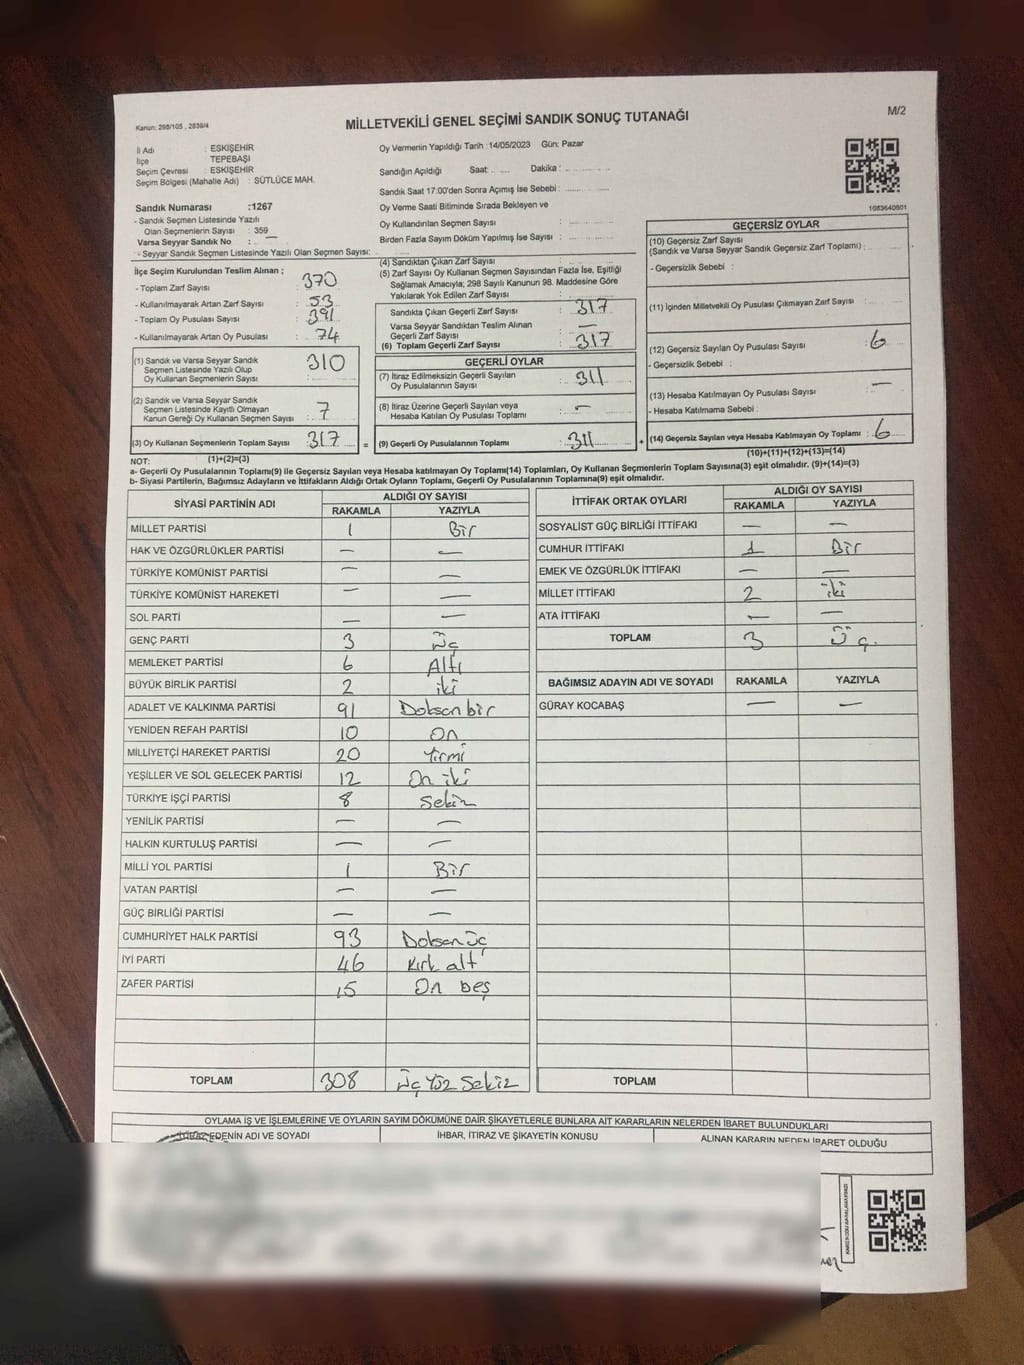 Kanun: 298/105 , 2839/4
MİLLETVEKİLİ GENEL SEÇİMİ SANDIK SONUÇ TUTANAĞI
M/2
İl Adı : ESKİŞEHİR
İlçe TEPEBAŞI
Seçim Çevresi : ESKİŞEHİR
Seçim Bölgesi (Mahalle Adı) : SÜTLÜCE MAH.
Sandık Numarası :1267
- Sandık Seçmen Listesinde Yazılı
Olan Seçmenlerin Sayısı : 359
Varsa Seyyar Sandık No : —
- Seyyar Sandık Seçmen Listesinde Yazılı Olan Seçmen Sayısı:
Oy Vermenin Yapıldığı Tarih :14/05/2023 Gün: Pazar
Sandığın Açıldığı Saat: Dakika :
Sandık Saat 17:00'den Sonra Açımış İse Sebebi :
Oy Verme Saati Bitiminde Sırada Bekleyen ve
Oy Kullandırılan Seçmen Sayısı :
Birden Fazla Sayım Döküm Yapılmış İse Sayısı :
1083640801
İlçe Seçim Kurulundan Teslim Alınan ;
- Toplam Zarf Sayısı : 370
- Kullanılmayarak Artan Zarf Sayısı : 53
- Toplam Oy Pusulası Sayısı : 391
- Kullanılmayarak Artan Oy Pusulası : 74
(1) Sandık ve Varsa Seyyar Sandık
Seçmen Listesinde Yazılı Olup
Oy Kullanan Seçmenlerin Sayısı : 310
(2) Sandık ve Varsa Seyyar Sandık
Seçmen Listesinde Kayıtlı Olmayan
Kanun Gereği Oy Kullanan Seçmen Sayısı : 7
(3) Oy Kullanan Seçmenlerin Toplam Sayısı : 317 =
(1)+(2)=(3)
(4) Sandıktan Çıkan Zarf Sayısı :
(5) Zarf Sayısı Oy Kullanan Seçmen Sayısından Fazla İse, Eşitliği
Sağlamak Amacıyla; 298 Sayılı Kanunun 98. Maddesine Göre
Yakılarak Yok Edilen Zarf Sayısı :
Sandıkta Çıkan Geçerli Zarf Sayısı : 317
Varsa Seyyar Sandıktan Teslim Alınan
Geçerli Zarf Sayısı : —
(6) Toplam Geçerli Zarf Sayısı : 317
GEÇERLİ OYLAR
(7) İtiraz Edilmeksizin Geçerli Sayılan
Oy Pusulalarının Sayısı : 311
(8) İtiraz Üzerine Geçerli Sayılan veya
Hesaba Katılan Oy Pusulası Toplamı : —
(9) Geçerli Oy Pusulalarının Toplamı : 311 +
GEÇERSİZ OYLAR
(10) Geçersiz Zarf Sayısı
(Sandık ve Varsa Seyyar Sandık Geçersiz Zarf Toplamı) :
- Geçersizlik Sebebi :
(11) İçinden Milletvekili Oy Pusulası Çıkmayan Zarf Sayısı :
(12) Geçersiz Sayılan Oy Pusulası Sayısı : 6
- Geçersizlik Sebebi :
(13) Hesaba Katılmayan Oy Pusulası Sayısı : —
- Hesaba Katılmama Sebebi :
(14) Geçersiz Sayılan veya Hesaba Katılmayan Oy Toplamı : 6
(10)+(11)+(12)+(13)=(14)
NOT:
a- Geçerli Oy Pusulalarının Toplamı(9) ile Geçersiz Sayılan veya Hesaba katılmayan Oy Toplamı(14) Toplamları, Oy Kullanan Seçmenlerin Toplam Sayısına(3) eşit olmalıdır. (9)+(14)=(3)
b- Siyasi Partilerin, Bağımsız Adayların ve İttifakların Aldığı Ortak Oyların Toplamı, Geçerli Oy Pusulalarının Toplamına(9) eşit olmalıdır.
SİYASİ PARTİNİN ADI ALDIĞI OY SAYISI
RAKAMLA YAZIYLA
MİLLET PARTİSİ 1 Bir
HAK VE ÖZGÜRLÜKLER PARTİSİ — —
TÜRKİYE KOMÜNİST PARTİSİ — —
TÜRKİYE KOMÜNİST HAREKETİ — —
SOL PARTİ — —
GENÇ PARTİ 3 Üç
MEMLEKET PARTİSİ 6 Altı
BÜYÜK BİRLİK PARTİSİ 2 iki
ADALET VE KALKINMA PARTİSİ 91 Doksan bir
YENİDEN REFAH PARTİSİ 10 On
MİLLİYETÇİ HAREKET PARTİSİ 20 Yirmi
YEŞİLLER VE SOL GELECEK PARTİSİ 12 On iki
TÜRKİYE İŞÇİ PARTİSİ 8 Sekiz
YENİLİK PARTİSİ — —
HALKIN KURTULUŞ PARTİSİ — —
MİLLİ YOL PARTİSİ 1 Bir
VATAN PARTİSİ — —
GÜÇ BİRLİĞİ PARTİSİ — —
CUMHURİYET HALK PARTİSİ 93 Doksan üç
İYİ PARTİ 46 Kırk altı
ZAFER PARTİSİ 15 On beş
TOPLAM 308 Üç Yüz Sekiz
İTTİFAK ORTAK OYLARI ALDIĞI OY SAYISI
RAKAMLA YAZIYLA
SOSYALİST GÜÇ BİRLİĞİ İTTİFAKI — —
CUMHUR İTTİFAKI 1 Bir
EMEK VE ÖZGÜRLÜK İTTİFAKI — —
MİLLET İTTİFAKI 2 iki
ATA İTTİFAKI — —
TOPLAM 3 Üç.
BAĞIMSIZ ADAYIN ADI VE SOYADI RAKAMLA YAZIYLA
GÜRAY KOCABAŞ — —
TOPLAM
OYLAMA İŞ VE İŞLEMLERİNE VE OYLARIN SAYIM DÖKÜMÜNE DAİR ŞİKAYETLERLE BUNLARA AİT KARARLARIN NELERDEN İBARET BULUNDUKLARI
EDENİN ADI VE SOYADI İHBAR, İTİRAZ VE ŞİKAYETİN KONUSU ALINAN KARARIN NEDEN İBARET OLDUĞU